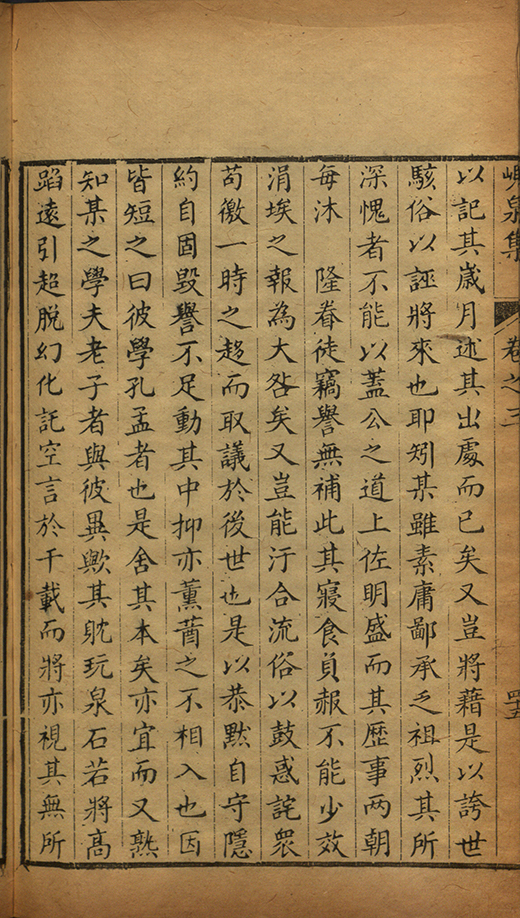 峴泉集 卷之三 四五
以記其歲月述其出處而已矣又豈將藉是以誇世
駭俗以誣將來也耶矧某雖素庸鄙承之祖烈其所
深愧者不能以蓋公之道上佐明盛而其歷事两朝
每沐 隆眷徒竊譽無補此其寢食負赧不能少效
涓埃之報為大咎矣又豈能汙合流俗以鼓惑詫衆
苟徼一時之趍而取議於後世也是以恭默自守隱
約自固毀譽不足動其中抑亦薰蕕之不相入也因
皆短之曰彼學孔孟者也是舍其本矣亦宜而又熟
知某之學夫老子者與彼異歟其躭玩泉石若將高
蹈遠引超脱幻化託空言於千載而將亦視其無所